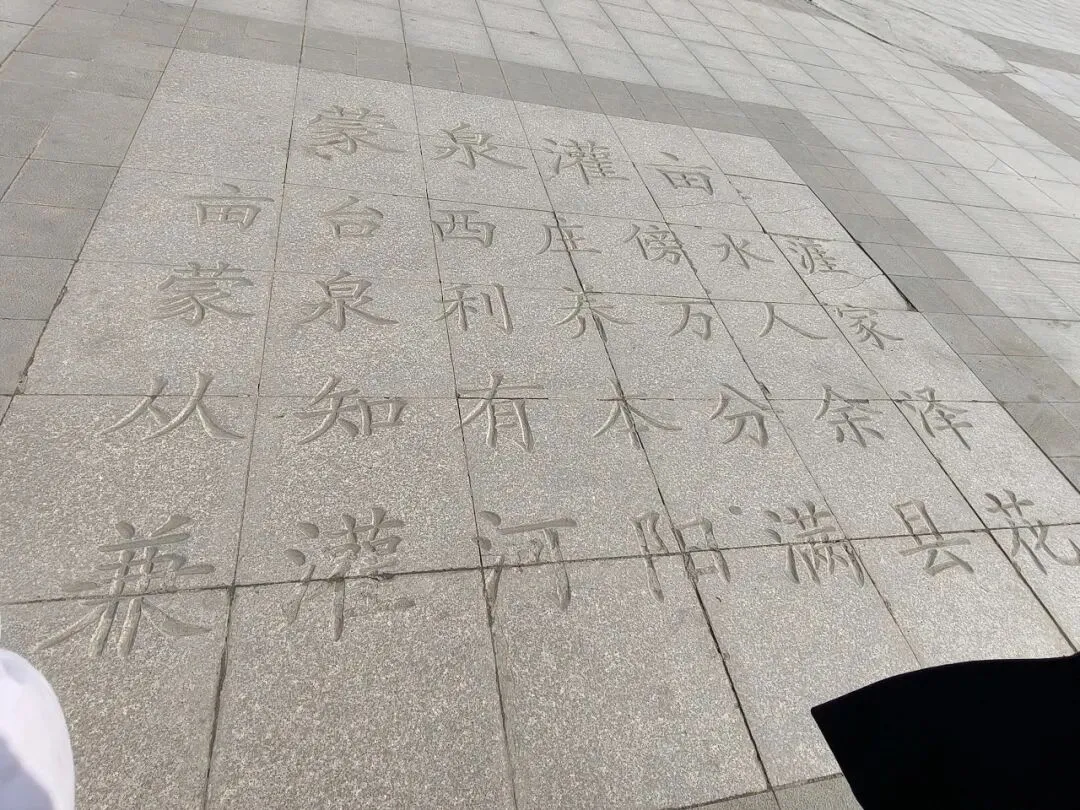 蒙泉灌亩
亩台西庄傍水涯
蒙泉利养万人家
从知有本分余泽
兼灌河阳满县花